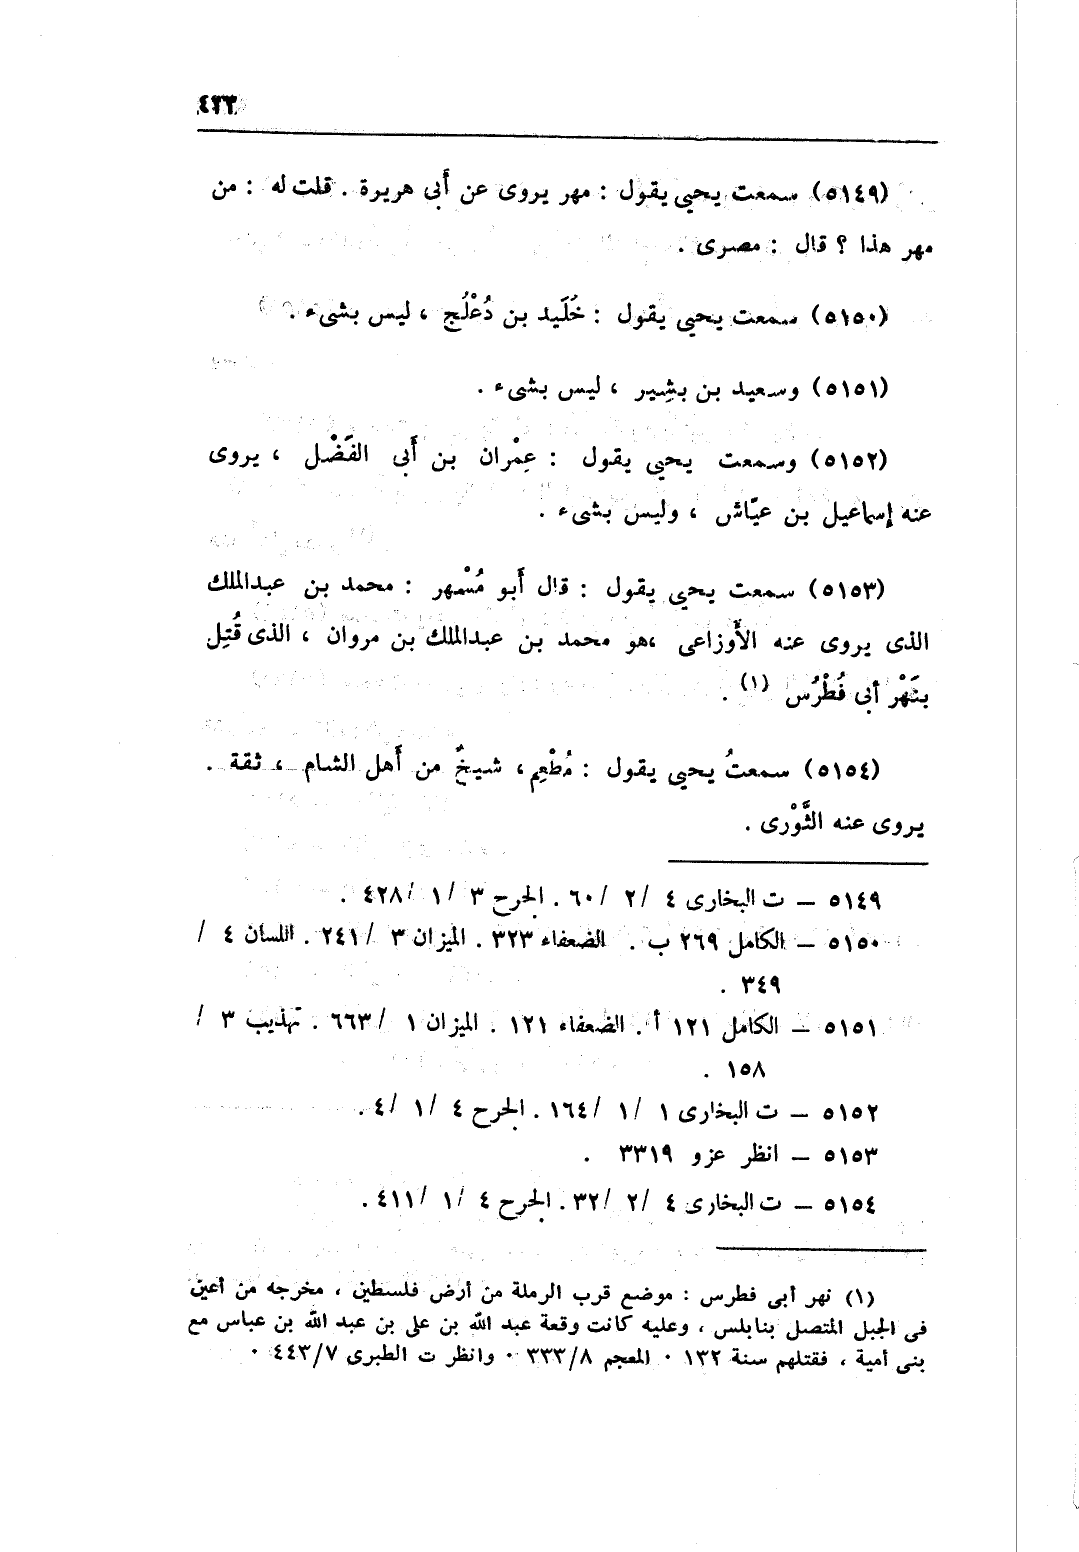 ٤٣٣
(٥١٤٩) سمعت يحيى يقول : مهر يروى عن أَبى هريرة . قلت له : من
مهر هذا ؟ قال : مصرى .
(٥١٥٠) سمعت يحيى يقول : خُلَيد بن دُعْلُج ، ليس بشىء .
(٥١٥١) وسعيد بن بشِير ، ليس بشىء .
(٥١٥٢) وسمعت يحيى يقول : عِمْران بن أَبى الفَضْل ، يروى
عنه إسماعيل بن عيّاش ، وليس بشىء .
(٥١٥٣) سمعت يحيى يقول : قال أَبو مُسْهر : محمد بن عبدالملك
الذى يروى عنه الأَوزاعى ،هو محمد بن عبدالملك بن مروان ، الذى قُتِل
بنَهْر أبى فُطْرُس (١) .
(٥١٥٤) سمعتُ يحيى يقول : مُطْعِم ، شيخٌ من أَهل الشام ، ثقة .
يروى عنه الثَّوْرى .
٥١٤٩ – ت البخارى ٤ / ٢ / ٦٠ . الجرح ٣ / ١ / ٤٢٨ .
٥١٥٠ – الكامل ٢٦٩ ب . الضعفاء ٣٢٣ . الميزان ٣ / ٢٤١ . اللسان ٤ /
٣٤٩ .
٥١٥١ – الكامل ١٢١ أ . الضعفاء ١٢١ . الميزان ١ / ٦٦٣ . تهذيب ٣ /
١٥٨ .
٥١٥٢ – ت البخارى ١ / ١ / ١٦٤ . الجرح ٤ / ١ / ٤ .
٥١٥٣ – انظر عزو ٣٣١٩ .
٥١٥٤ – ت البخارى ٤ / ٢ / ٣٢ . الجرح ٤ / ١ / ٤١١ .
(١) نهر أبى فطرس : موضع قرب الرملة من أرض فلسطين ، مخرجه من أعين
فى الجبل المتصل بنابلس ، وعليه كانت وقعة عبد الله بن على بن عبد الله بن عباس مع
بنى أمية ، فقتلهم سنة ١٣٢ . المعجم ٣٣٣/٨ . وانظر ت الطبرى ٤٤٣/٧ .